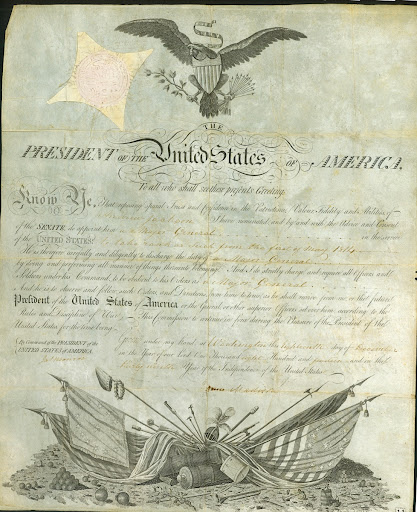 THE
PRESIDENT OF THE United States OF AMERICA.
To all who shall see these presents Greeting.
Know Ye, That reposing special Trust and Confidence in the Patriotism, Valour, Fidelity and Abilities of
I have nominated, and by and with the Advice and Consent
of the SENATE, do appoint him Major General in the service
of the UNITED STATES: to take rank as such from the first of May 1814.
He is therefore carefully and diligently to discharge the duty of Major General
by doing and performing all manner of things thereunto belonging. And I do strictly charge and require all Officers and
Soldiers under his Command, to be obedient to his Orders as Major General
And he is to observe and follow such Orders, and Directions, from time to time, as he shall receive from me, or the future
President of the United States of America, or the General or other superior Officers set over him, according to the
Rules and Discipline of War. This Commission to continue in force during the Pleasure of the President of the
United States for the time being.
Given under my hand, at Washington, this day of
in the Year of our Lord One Thousand eight Hundred and and in the
Year of the Independence of the United States.
By Command of the PRESIDENT of the
UNITED STATES of AMERICA.
James Madison